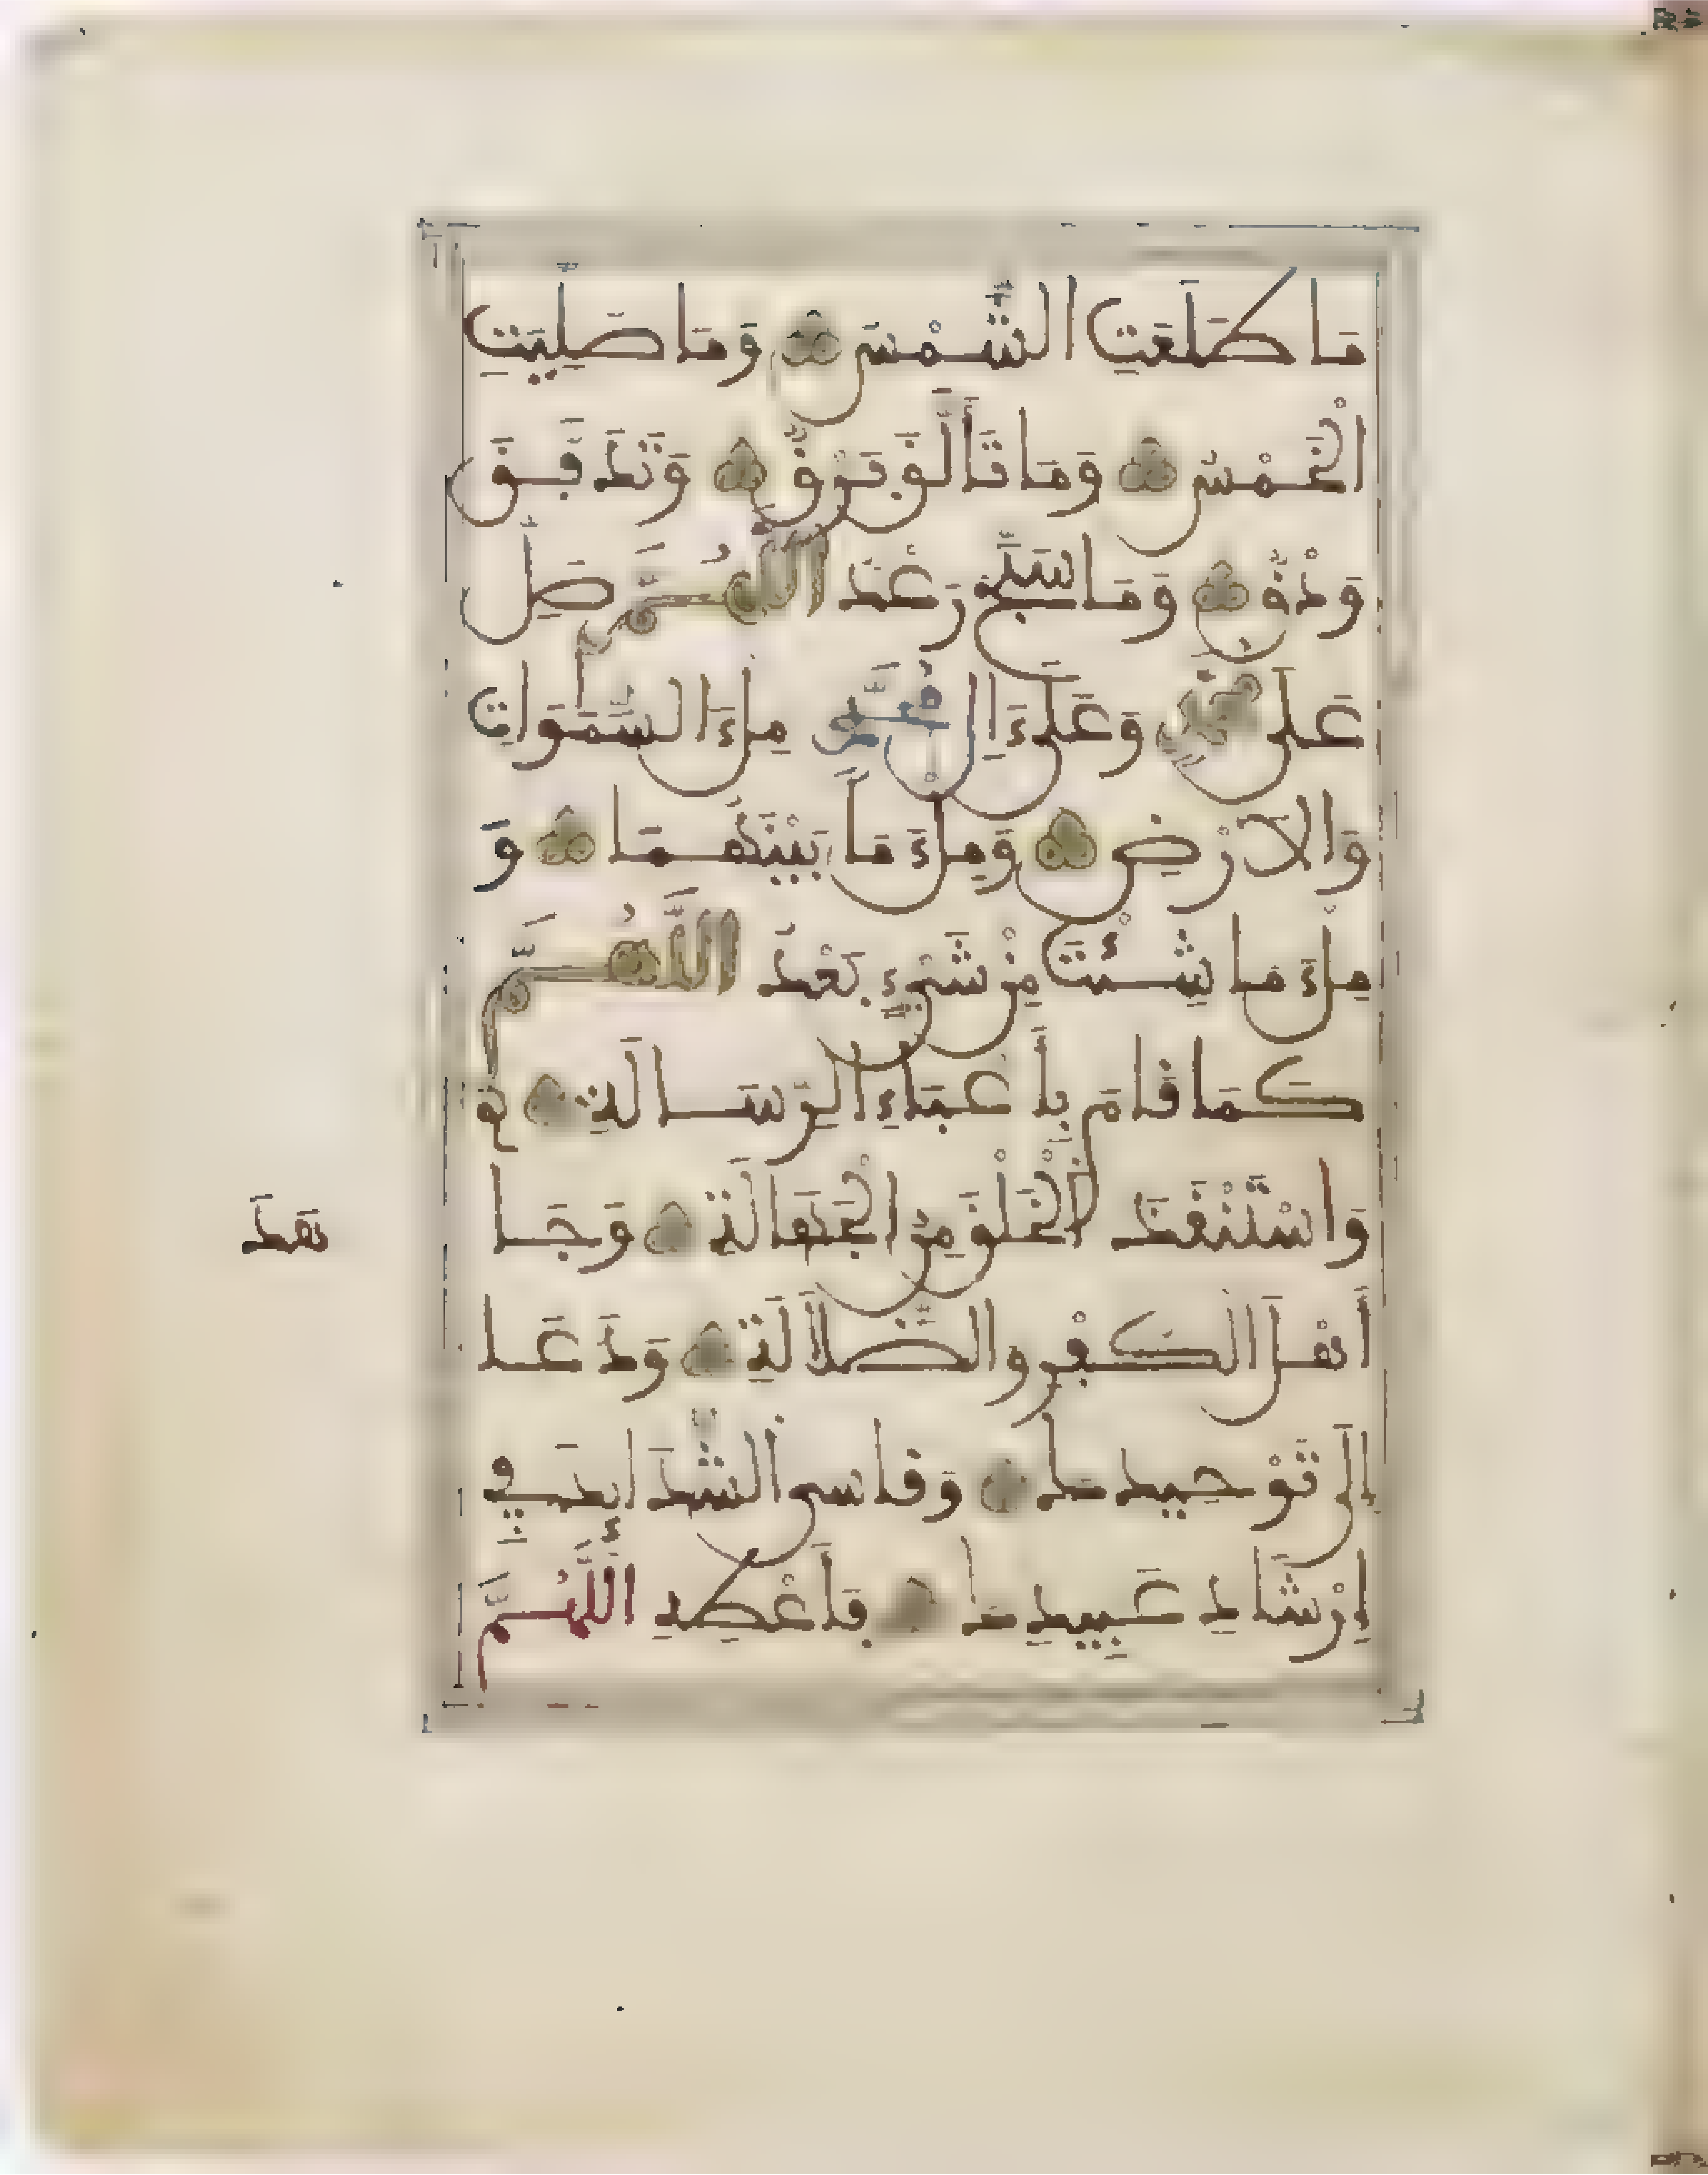 مَا طَلَعَتِ الشَّمْسُ وَمَا صُلِّيَتِ
الْخَمْسُ وَمَا تَأَلَّقَ بَرْقٌ وَتَدَفَّقَ
وَدْقٌ وَمَا سَبَّحَ رَعْدٌ اللَّهُمَّ صَلِّ
عَلَى مُحَمَّدٍ وَعَلَى ءَالِ مُحَمَّدٍ مِلْءَ السَّمَوَاتِ
وَالاَرْضِ وَمِلْءَ مَا بَيْنَهُمَا وَ
مِلْءَ مَا شِئْتَ مِنْ شَيْءٍ بَعْدُ اللَّهُمَّ
كَمَا قَامَ بِأَعْبَاءِ الرِّسَالَةِ
وَاسْتَنْقَذَ الْخَلْقَ مِنَ الْجَهَالَةِ وَجَا
هَدَ
أَهْلَ الْكُفْرِ وَالضَّلاَلَةِ وَدَعَا
إِلَى تَوْحِيدِكَ وَقَاسَى الشَّدَائِدَ فِي
إِرْشَادِ عَبِيدِكَ فَأَعْطِهِ اللَّهُمَّ